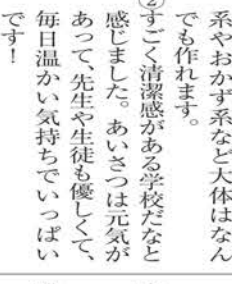 系やおかず系など大体はなん
でも作れます。
②すごく清潔感がある学校だなと
感じました。あいさつは元気が
あって、先生や生徒も優しくて、
毎日温かい気持ちでいっぱい
です！